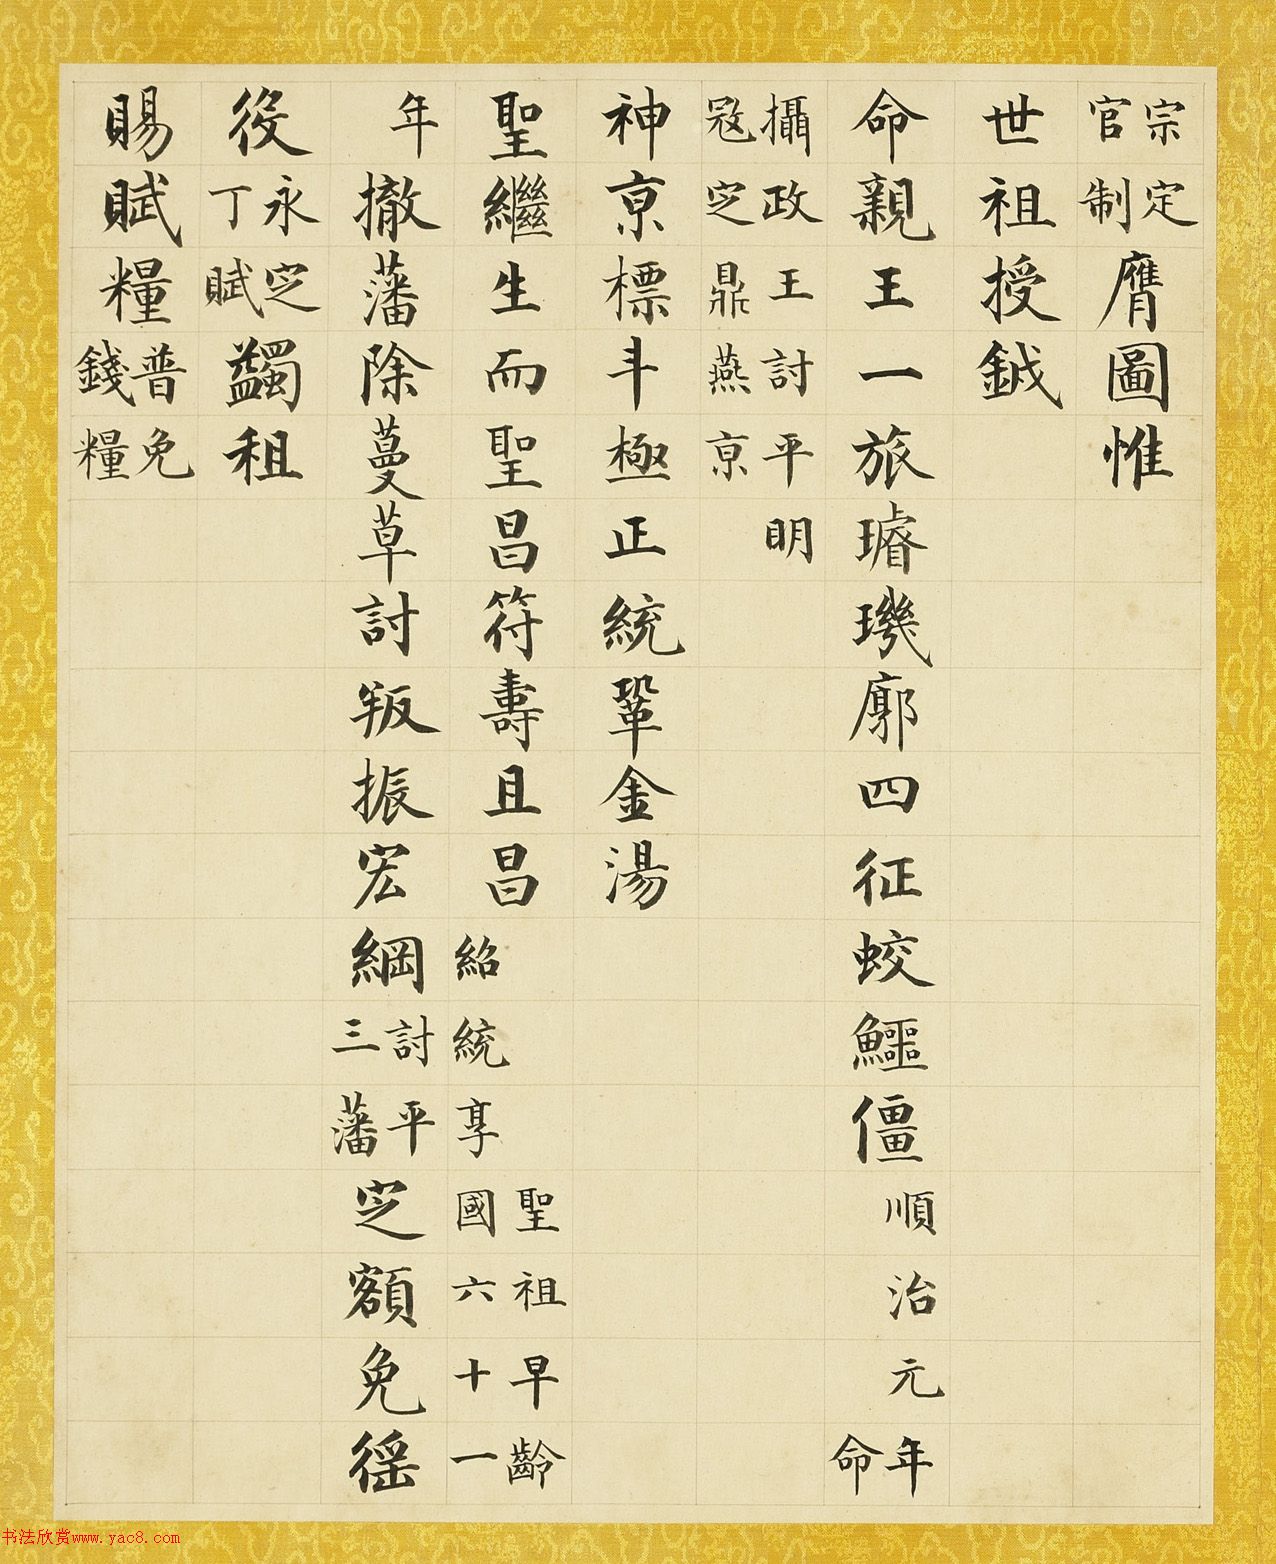 宗定官制膺圖惟
世祖授鉞
命親王一旅璿璣廓四征蛟鱷僵順治元年命
攝政王討平明冦㝎鼎燕亰
神亰標斗極正統鞏金湯
聖繼生而聖昌符壽且昌聖祖早齡紹統享國六十一
年撤藩除蔓草討叛振宏綱討平三藩㝎額免徭
役永㝎丁賦蠲租
賜賦糧普免錢糧
书法欣赏www.yac8.com